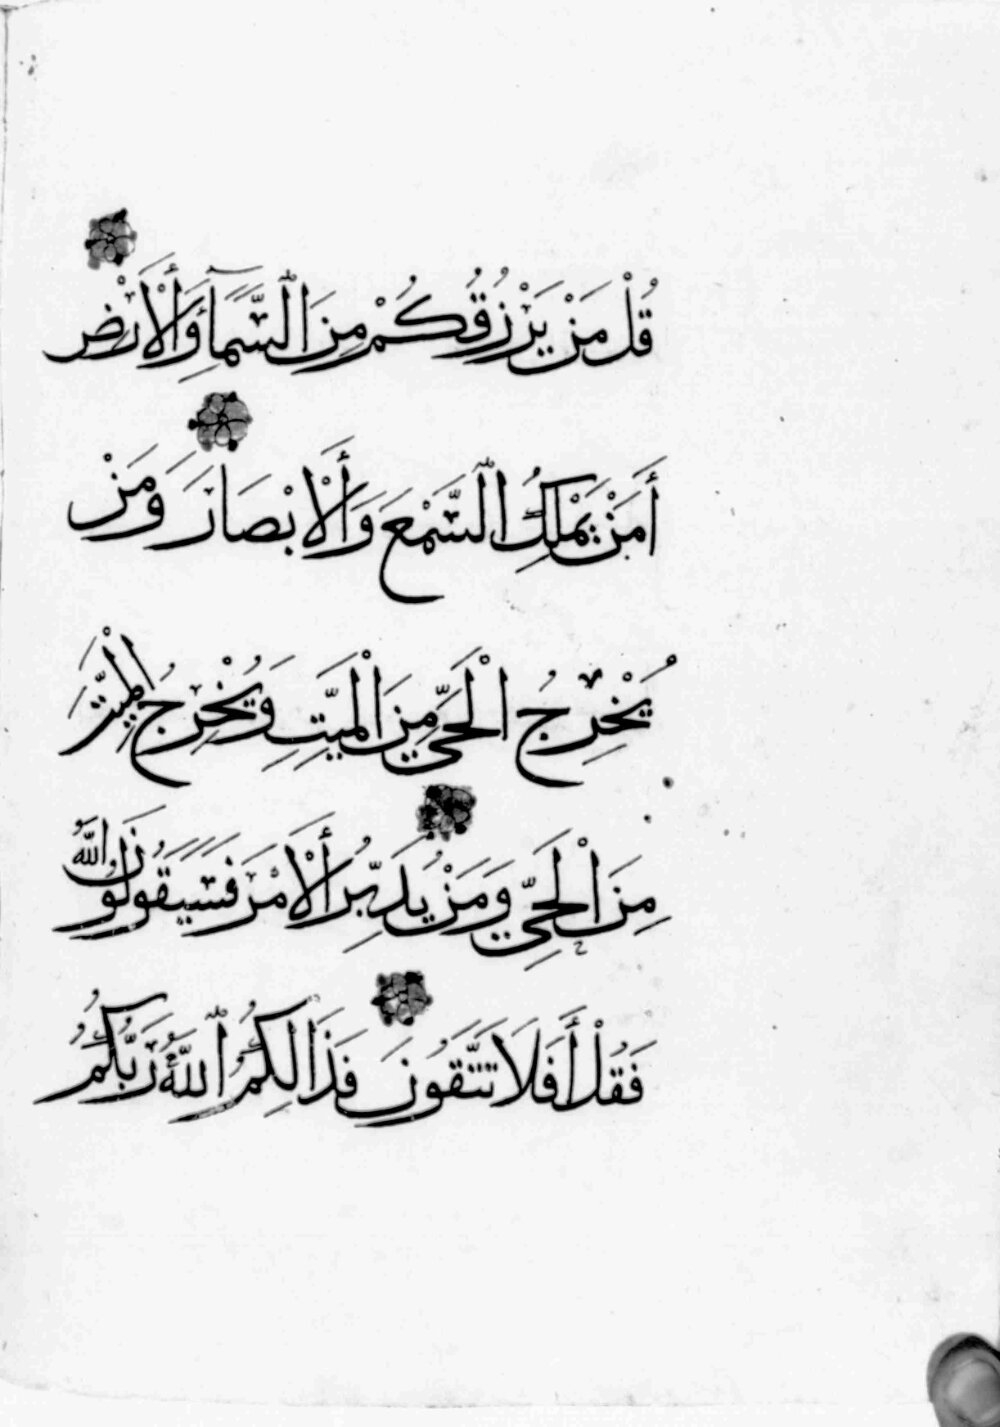 قُلْ مَنْ يَرْزُقُكُمْ مِنَ السَّمَآءِ وَالْأَرْضِ
أَمَنْ يَمْلِكُ السَّمْعَ وَالْأَبْصَارَ وَمَنْ
يُخْرِجُ الْحَيَّ مِنَ الْمَيِّتِ وَيُخْرِجُ الْمَيِّتَ
مِنَ الْحَيِّ وَمَنْ يُدَبِّرُ الْأَمْرَ فَسَيَقُولُونَ اللَّهُ
فَقُلْ أَفَلَا تَتَّقُونَ فَذَالِكُمُ اللَّهُ رَبُّكُمُ